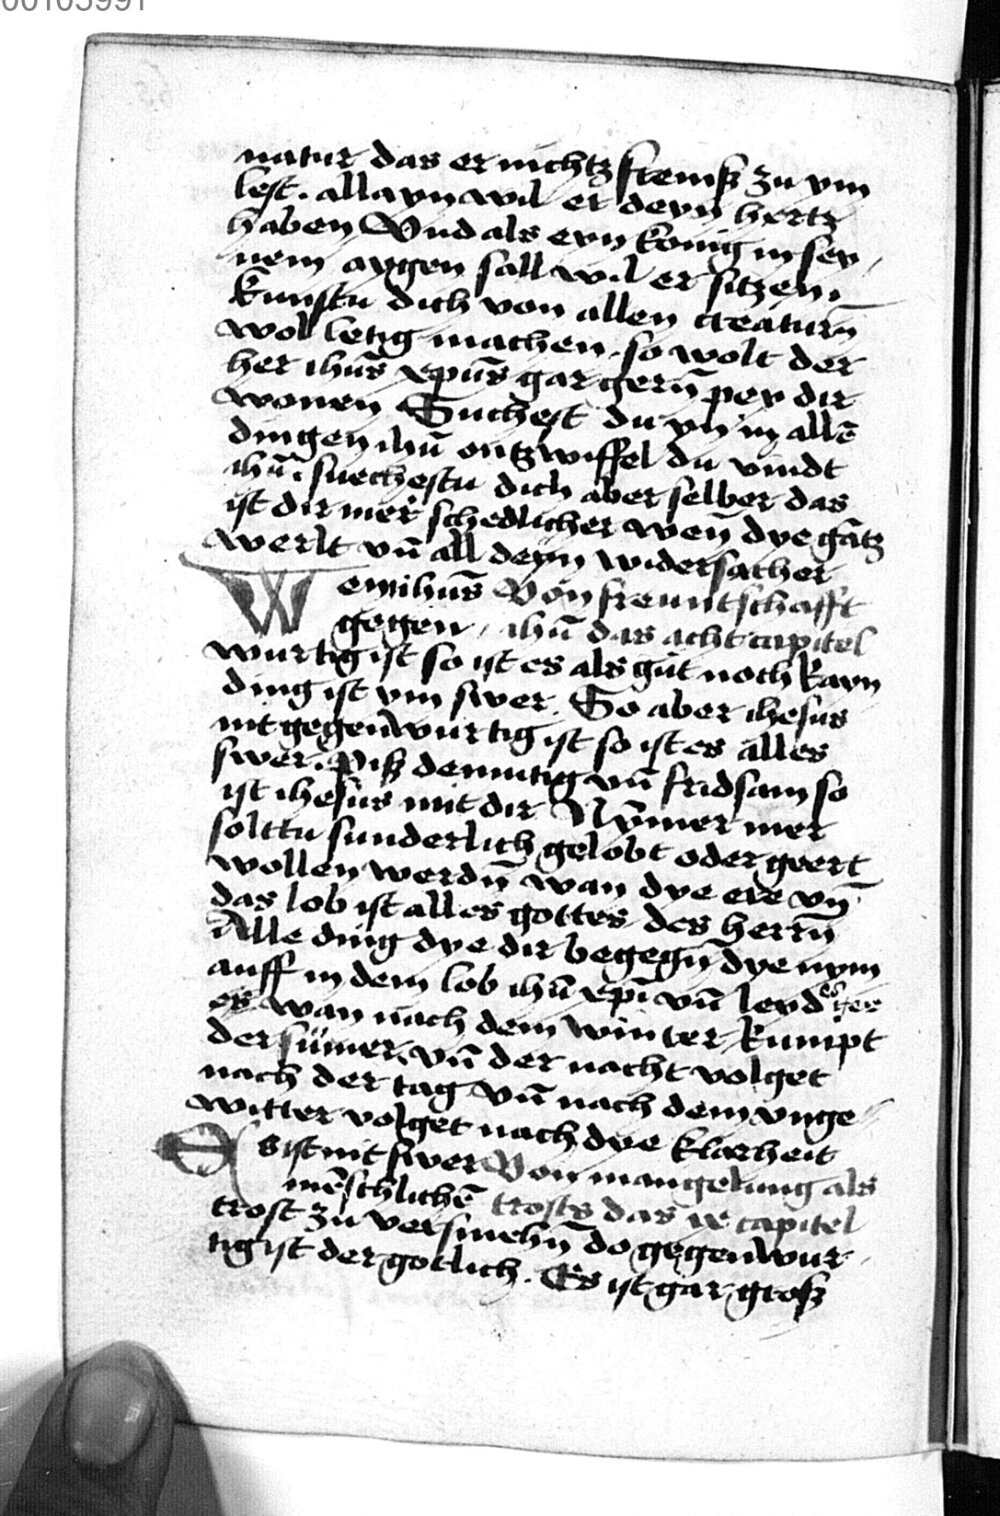 00103991
natur das er nichtz fremß zu ym
lest. allayn wil er deyn hertz
haben Vnd als eyn konig in sey
nem aygen sall wil er sitzen.
kunstu dich von allen creaturn̄
wol letig machen. so wolt der
her ihus̄ xpus̄ gar gern̄ pey dir
wonen Suchest du yn in allē
dingen ihū ontzwiffel du vindt
ihū. suechestu dich aber selber das
ist dir mer schedlicher wen̄ dye gātz
werlt vn̄ all deyn widersacher
Wem ihus̄ Von freuntschafft
gegen ihū das acht capitel
wurtig ist so ist es als gut noch kayn
ding ist ym swer. So aber ihesus
nit gegenwurtig ist so ist es alles
swer. Piß demutig vn̄ fridsam so
ist ihesus mit dir Nȳmer mer
solttu sunderlich gelobt oder geert
wollen werdn̄ wan dye ere vn̄
das lob ist alles gottes des herrn̄
Alle ding dye dir begegn̄ dye nym
auff in dem lob ihū xpī vn̄ leyd es
es wan nach dem winter kumpt
der sumer. vn̄ der nacht volget
nach der tag vn̄ nach dem vnge
witter volget nach dye klarheit
Es ist nit swer Von mangelung als
mēschlichē trosts das ix capitel
trost zu versmehn̄ do gegenwur
tig ist der gotlich. Es ist gar groß